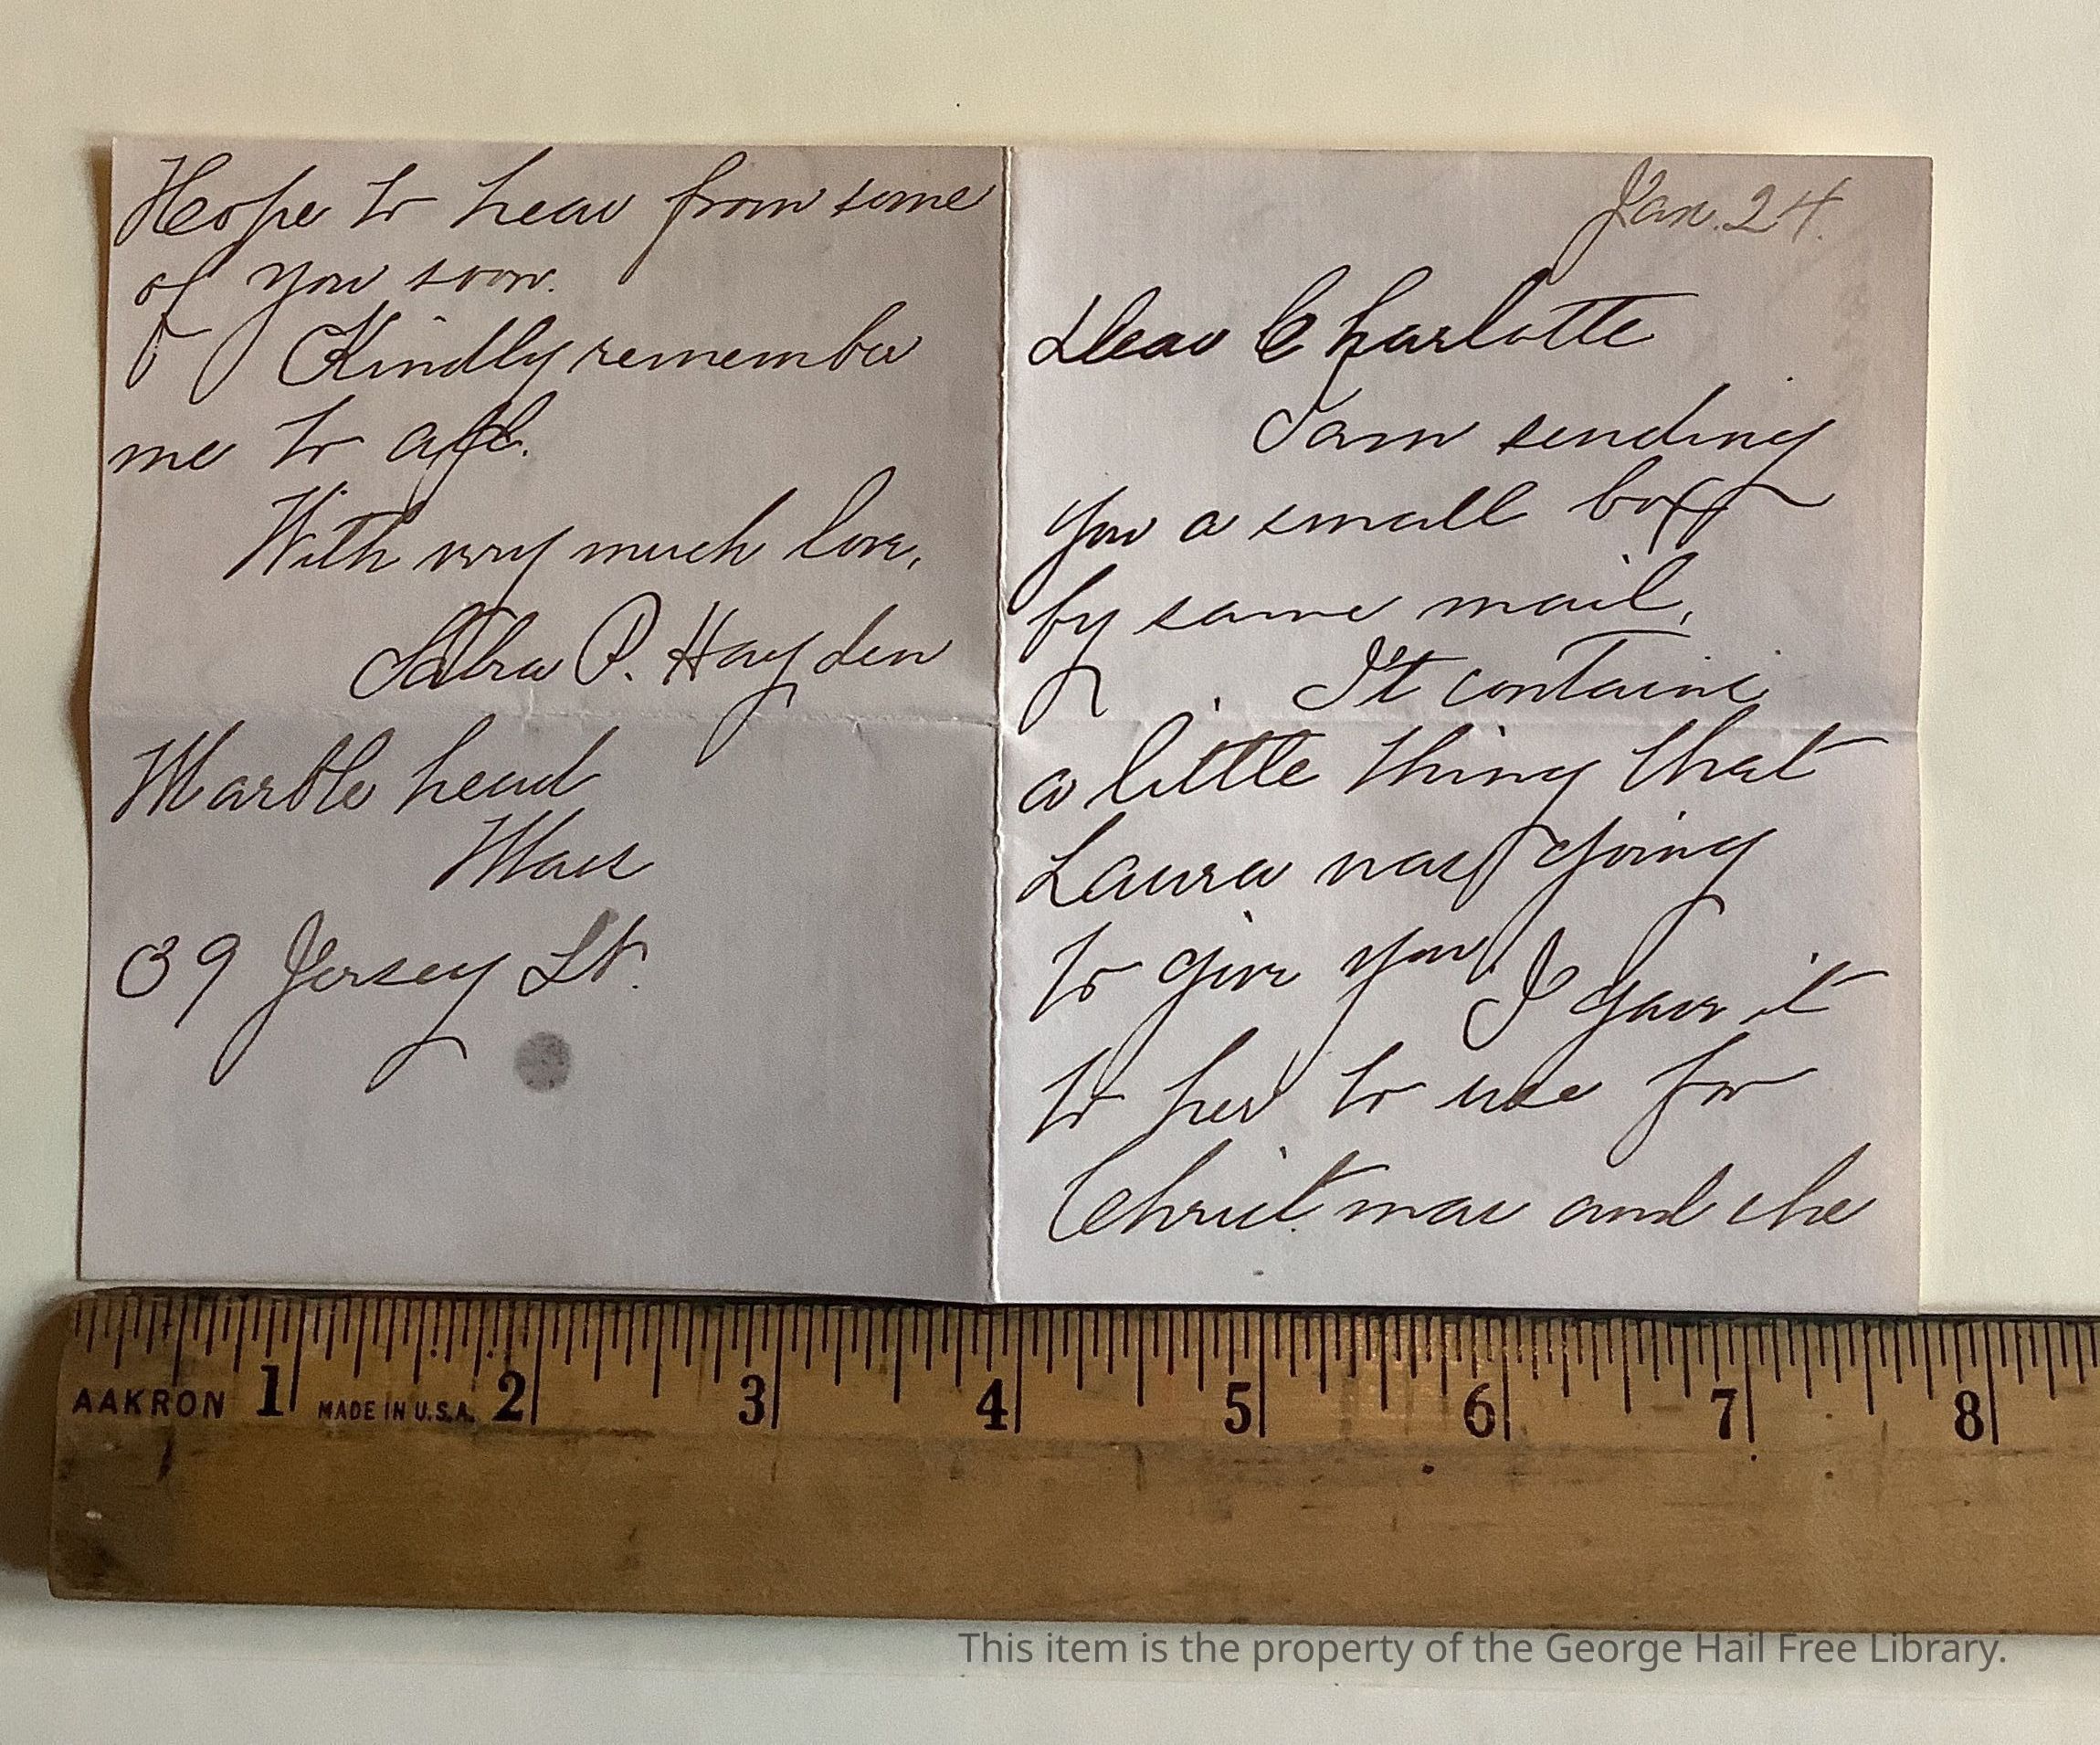 Hope to hear from some
of you soon.
Kindly remember
me to all.
With very much love,
Sabra P. Hayden
Marble head
Mass
39 Jersey St.
Jan. 24.
Dear Charlotte
I am sending
you a small box
by same mail.
It contains
a little thing that
Laura was going
to give you. I gave it
to her to use for
Christmas and she
1 2 3 4 5 6 7 8
AAKRON MADE IN U.S.A.
This item is the property of the George Hail Free Library.